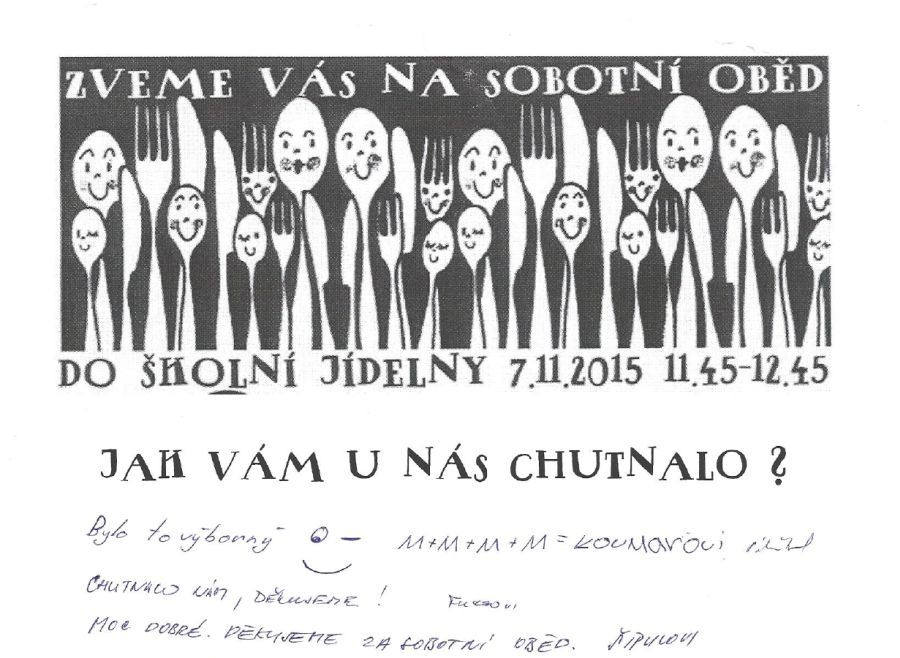 ZVEME VÁS NA SOBOTNÍ OBĚD
DO ŠKOLNÍ JÍDELNY 7.11.2015 11.45-12.45
JAK VÁM U NÁS CHUTNALO ?
Bylo to výborný M+M+M+M = KOUMAROVI
CHUTNALO NÁM, DĚKUJEME !
MOC DOBRÉ. DĚKUJEME ZA SOBOTNÍ OBĚD.